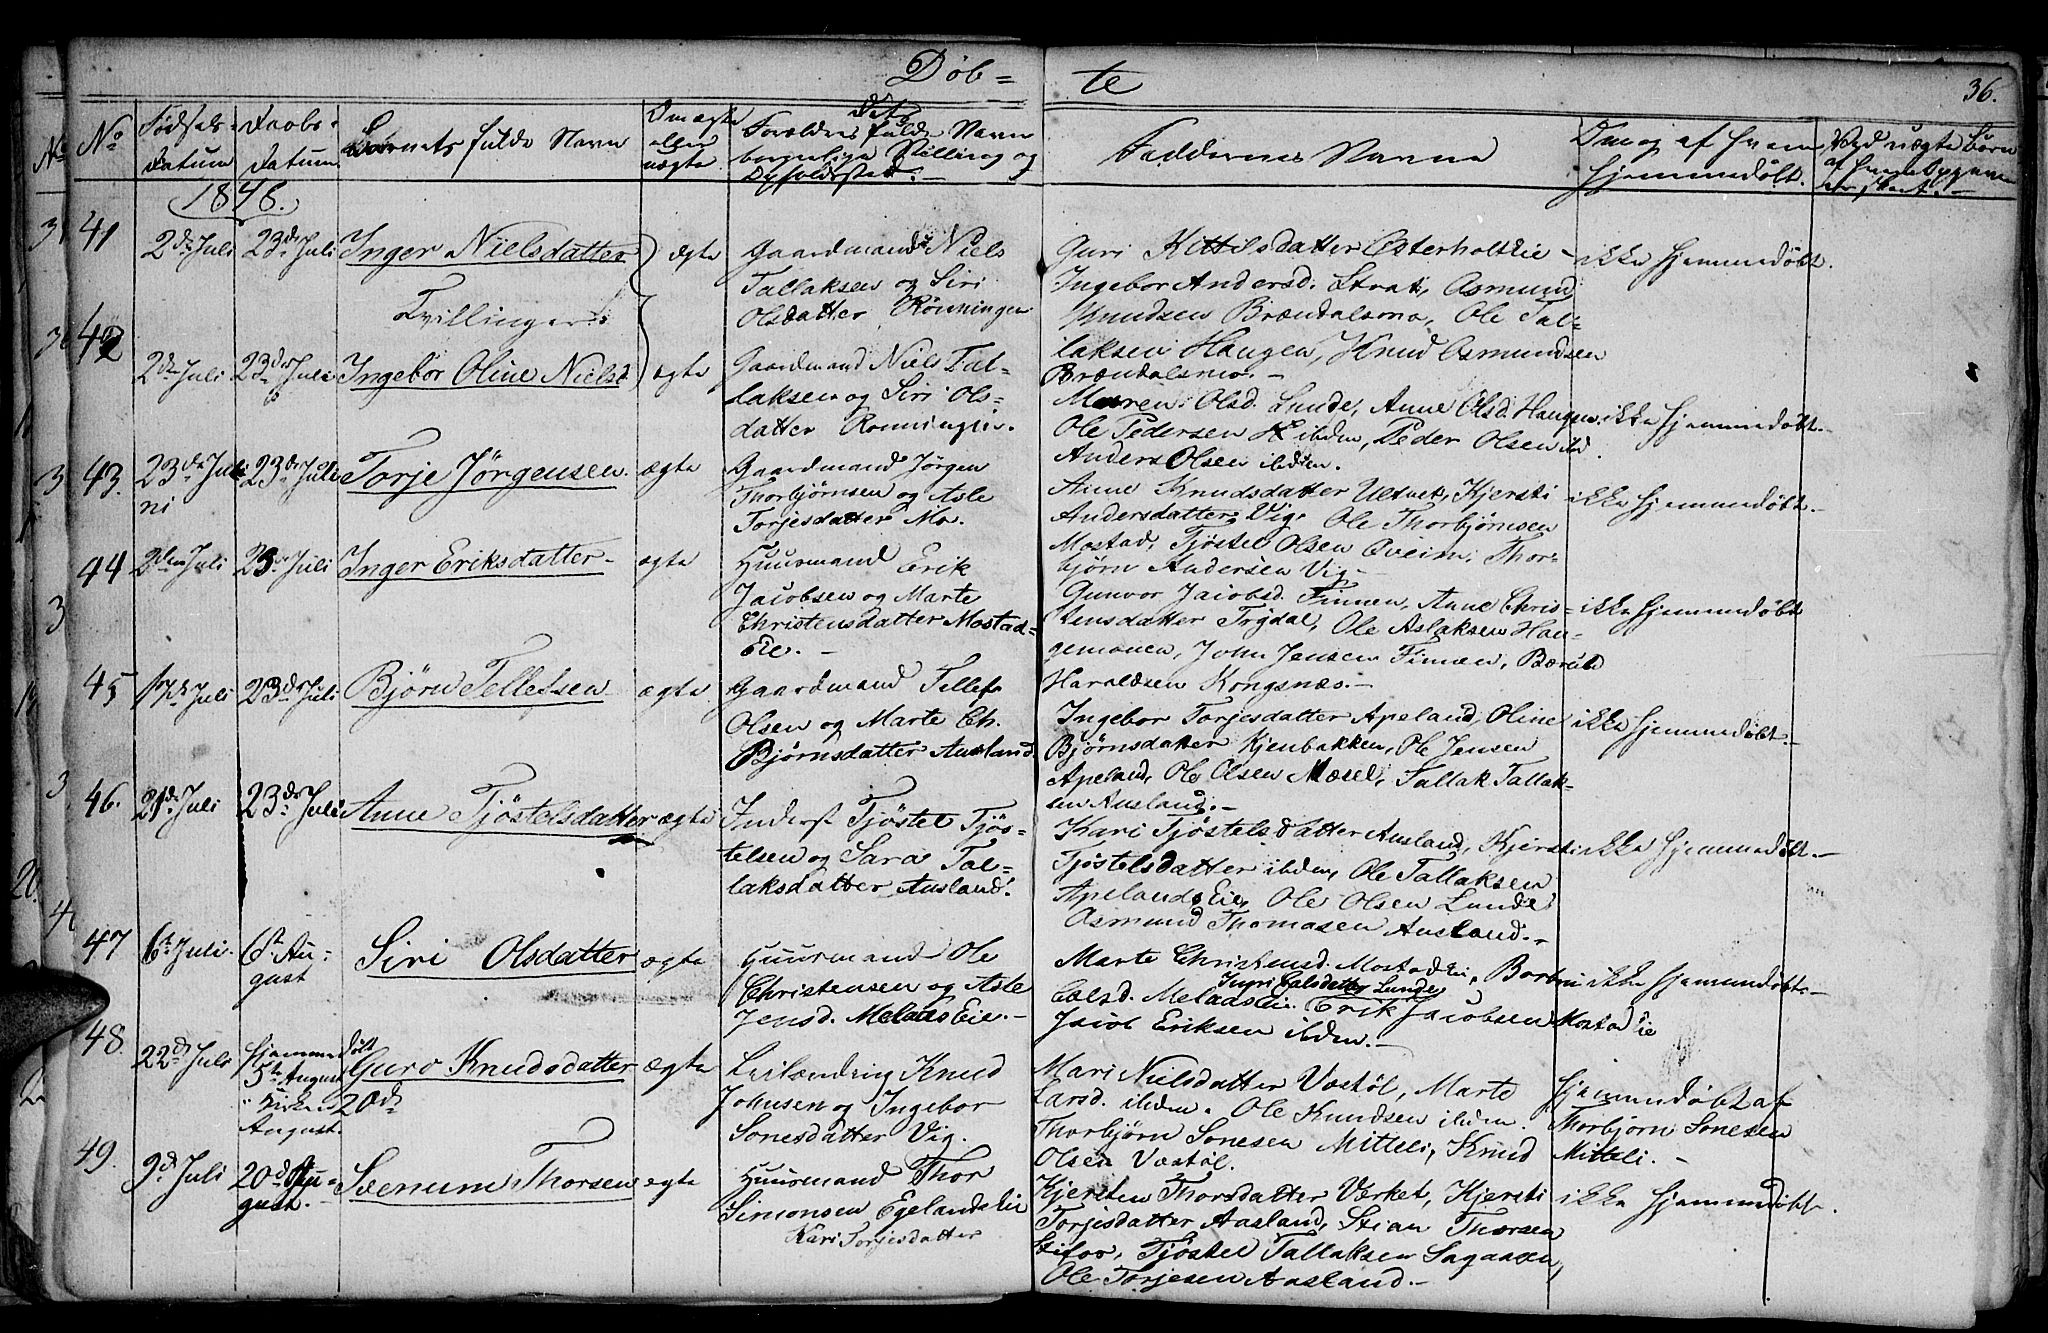 Døb= te
36.
No
Fødsels-
Datum
Daabs-
Datum
Barnets fulde Navn
Om ægte
eller
uægte
Dets
Forældres fulde Navn
borgerlige Stilling og
Opholdssted.
Faddernes Navne
Om og af hvem
hjemmedøbt.
Ved uægte Børn
1848.
41
2den Juli
23de Juli
Inger Nielsdatter
ægte
Gaardmand Niels
Tallaksen og Siri
Olsdatter Rönningen
Guri Kittilsdatter Østerholt Eie
Ingebor Andersd. Strat, Asmund
Knudsen Brændalsmo, Ole Tal=
laksen Haugen, Knud Asmundsen
Brændalsmo. -
ikke hjemmedøbt.
Tvillinger
42
2den Juli
23de Juli
Ingebor Oline Nielsd
ægte
Gaardmand Niels Tal=
laksen og Siri Ols=
datter Rönningen.
Maren Olsd. Lunde, Anne Olsd. Haugen
Ole Pedersen ibden, Peder Olsen ibd.
Anders Olsen ibden.
ikke hjemmedøbt.
43.
23de Juli
ni
23de Juli
Torje Jörgensen.
ægte
Gaardmand Jörgen
Thorbjørnsen og Asle
Torjesdatter Mo.
Anne Knudsdatter Ulsvet, Kjersti
Andersdatter Vig, Ole Thorbjørnsen
Mostad, Tjöstel Olsen Qveim, Thor=
bjørn Andersen Vig.
ikke hjemmedøbt.
44
2den Juli
23de Juli
Inger Eriksdatter
ægte
Huusmand Erik
Jacobsen og Marte
Christensdatter Mostad=
Eie. -
Gunvor Jacobsd. Finnen, Anne Chris=
tensdatter Trydal, Ole Aslaksen Hau=
gemoen, John Jensen Finnen, Bærule
Haraldsen Kongsnæs. -
ikke hjemmedøbt
45
17de Juli
23de Juli
Björn Tellefsen
ægte
Gaardmand Tellef
Olsen og Marte Ch.
Björnsdatter Ausland
Ingebor Torjesdatter Apeland, Oline
Björnsdatter Kjenbakken, Ole Jensen
Apeland, Ole Olsen Mæsel, Tallak Tallak=
sen Ausland. -
ikke hjemmedøbt.
46.
21de Juli
23de Juli
Anne Tjöstelsdatter
ægte
Inderst Tjöstel Tjös=
telsen og Sara Tal=
laksdatter Ausland.
Kari Tjöstelsdatter Ausland, Kjersti
Tjöstelsdatter ibden, Ole Tallaksen
Apelands Eie, Ole Olsen Lunde
Asmund Thomasen Ausland. -
ikke hjemmedøbt. -
47
6te Juli.
6te Au=
gust
Siri Olsdatter
ægte
Huusmand Ole
Christensen og Asle
Jensd. Melaas Eie. -
Marte Christensd. Mostad Ei, Barbro
Jacob Eriksen ibden. -
Erik Jacobsen Mostad Eie
ikke hjemmedøbt. -
48.
22de Juli
hjemmedøbt
5te August
Kirken 20de
August.
Guro Knudsdatter
ægte
Knud
Johnsen og Ingebor
Sonesdatter Vig.
Mari Nielsdatter Vastöl, Marte
Larsd. ibden. Ole Knudsen ibden.
Thorbjörn Sonesen Mitteli, Knud
Olsen Vastöl.
hjemmedøbt af
Thorbjörn Sonesen
Mitteli. -
49.
9de Juli
20de Au=
gust. -
Svenum Thorsen
ægte
Huusmand Thor
Simonsen Egelands Eie
Kari Torjesdatter
Kjersten Thorsdatter Verket, Kjersti
Torjesdatter Aasland, Stian Thorsen
Stifos, Tjöstel Tallaksen Sagaasen,
Ole Torjesen Aasland. -
ikke hjemmedøbt.